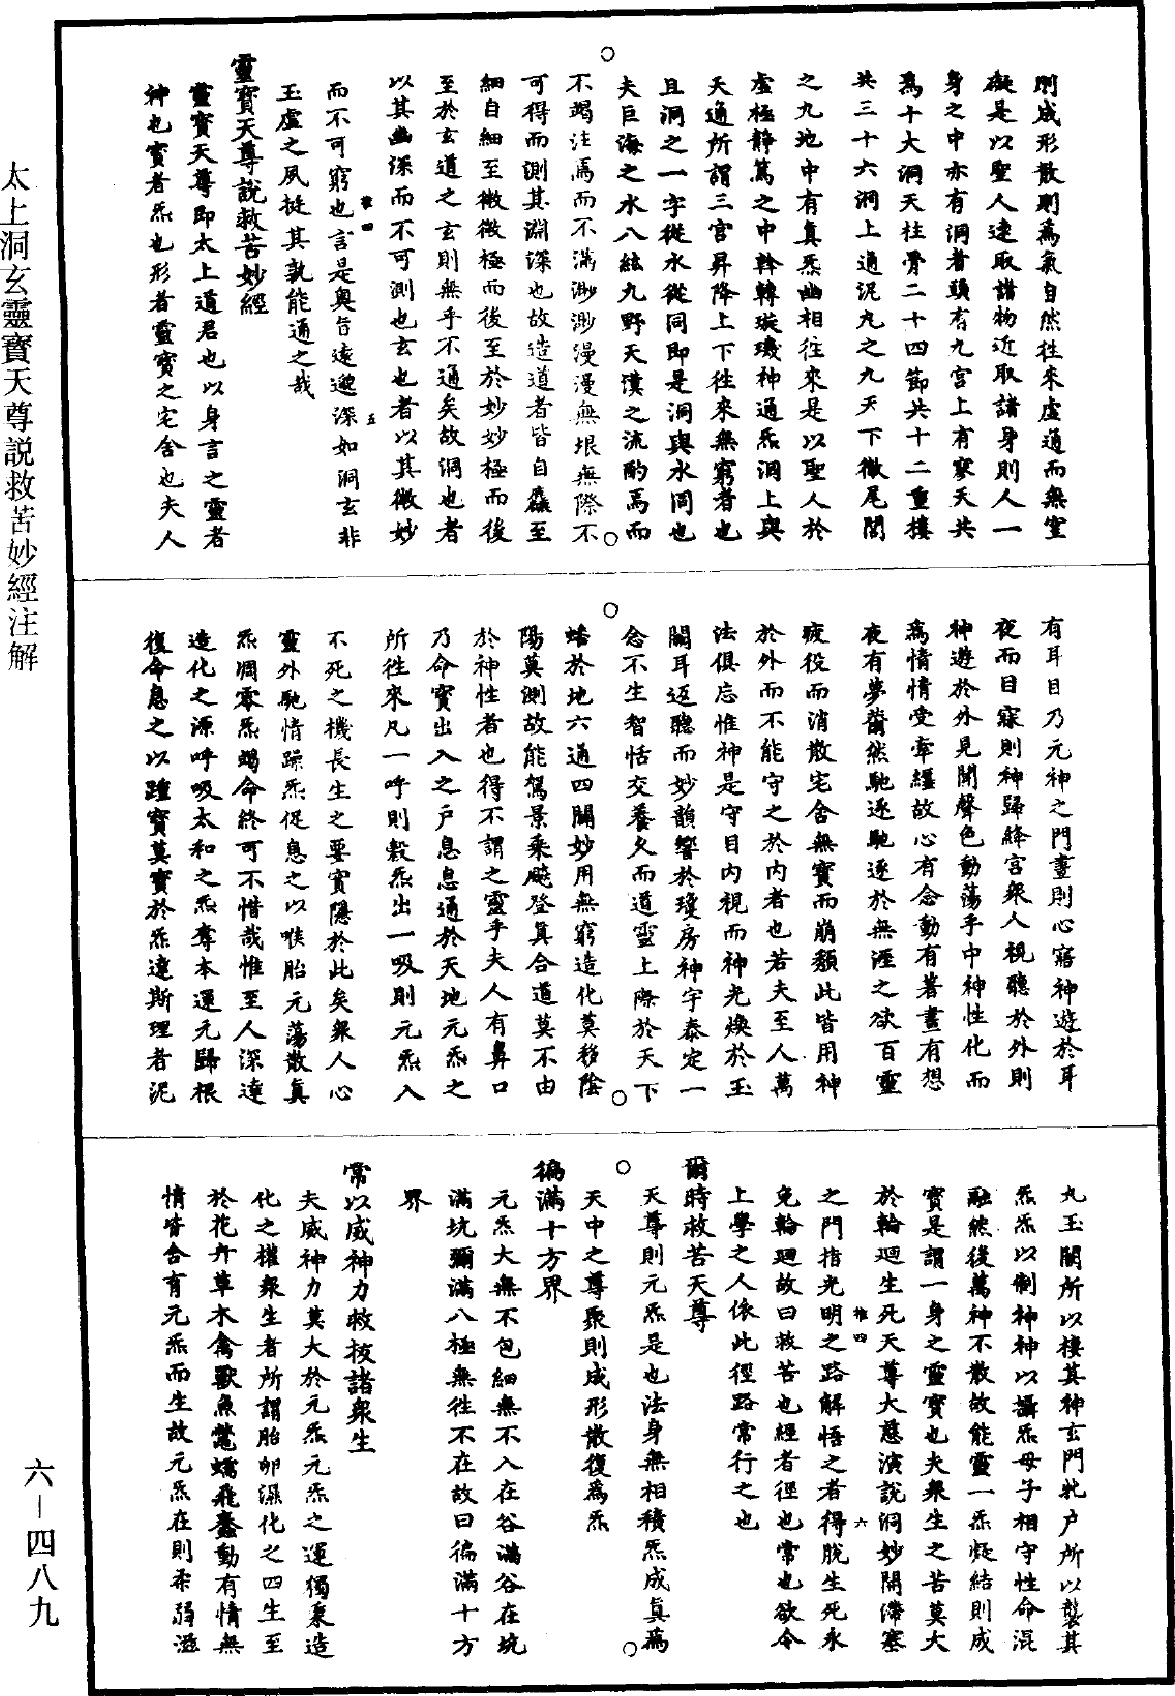 則成形散則爲氣自然往來虛通而無窒
礙是以聖人遠取諸物近取諸身則人一
身之中亦有洞者頭有九宮上有寥天共
爲十大洞天柱骨二十四節共十二重樓
共三十六洞上通泥丸之九天下徹尾閭
之九地中有真炁幽相往來是以聖人於
虛極靜篤之中斡轉璇璣神通炁洞上與
天通所謂三宮昇降上下往來無窮者也
且洞之一字從水從同即是洞與水同也
夫巨海之水八絃九野天漢之流酌焉而
不竭注焉而不滿渺渺漫漫無垠無際不
可得而測其淵深也故造道者皆自麤至
細自細至微微極而後至於妙妙極而後
至於玄道之玄則無乎不通矣故洞也者
以其幽深而不可測也玄也者以其微妙
而不可窮也言是奧旨遠邈深如洞玄非
玉虛之夙挺其孰能通之哉
靈寶天尊說救苦妙經
靈寶天尊即太上道君也以身言之靈者
神也寶者炁也形者靈寶之宅舍也夫人
有耳目乃元神之門晝則心寤神遊於耳
夜而目寐則神歸絳宮衆人視聽於外則
神遊於外見聞聲色動蕩乎中神性化而
爲情情受牽纏故心有念動有著晝有想
夜有夢薾然馳逐馳逐於無涯之欲百靈
疲役而消散宅舍無寶而崩頹此皆用神
於外而不能守之於內者也若夫至人萬
法俱忘惟神是守目內視而神光煥於玉
闕耳返聽而妙韻響於瓊房神宇泰定一
念不生智恬交養久而道靈上際於天下
蟠於地六通四闢妙用無窮造化莫移陰
陽莫測故能駕景乘飈登真合道莫不由
於神性者也得不謂之靈乎夫人有鼻口
乃命寶出入之戶息息通於天地元炁之
所往來凡一呼則穀炁出一吸則元炁入
不死之機長生之要實隱於此矣衆人心
靈外馳情躁炁促息之以喉胎元蕩散真
炁凋零炁竭命終可不惜哉惟至人深達
造化之源呼吸太和之炁奪本運元歸根
復命息之以踵寶莫寶於炁達斯理者泥
丸玉闕所以棲其神玄門牝户所以襲其
炁炁以制神神以攝炁母子相守性命混
融然後萬神不散故能靈一炁凝結則成
寶是謂一身之靈寶也夫衆生之苦莫大
於輪迴生死天尊大慈演說洞妙開滯塞
之門指光明之路解悟之者得脫生死永
免輪迴故曰救苦也經者徑也常也欲令
上學之人依此徑路常行之也
爾時救苦天尊
天尊則元炁是也法身無相積炁成真爲
天中之尊聚則成形散復爲炁
徧滿十方界
元炁大無不包細無不入在谷滿谷在坑
滿坑彌滿八極無往不在故曰徧滿十方
界
常以威神力救拔諸衆生
夫威神力莫大於元炁元炁之運獨秉造
化之權衆生者所謂胎卵濕化之四生至
於花卉草木禽獸魚鱉蠕飛蠢動有情無
情皆含有元炁而生故元炁在則柔弱滋
太上洞玄靈寶天尊說救苦妙經注解
六—四八九